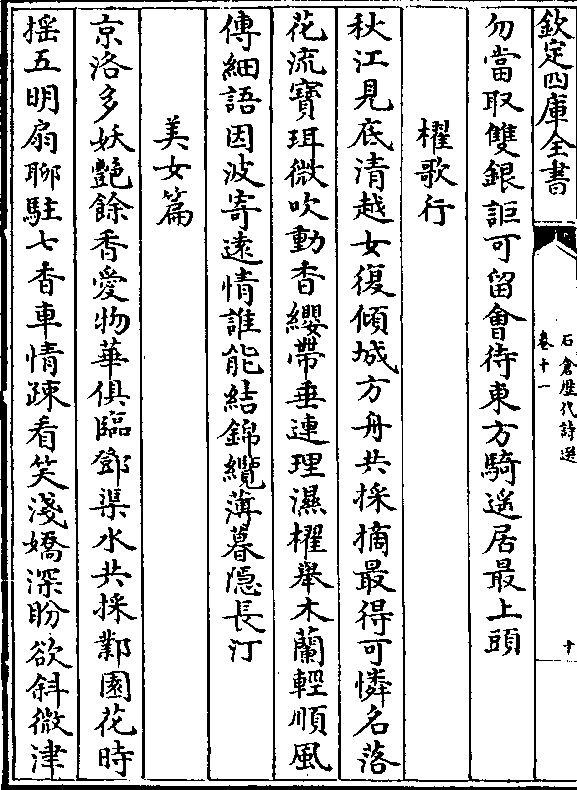 欽定四庫全書
石倉歴代詩選
卷十一
十
勿當取雙銀詎可留㑹待東方騎遥居最上頭
櫂歌行
秋江見底清越女復傾城方舟共採摘最得可憐名落
花流寶珥微吹動香纓帶垂連理濕櫂舉木蘭輕順風
傳細語因波寄遠情誰能結錦纜薄暮隠長汀
美女篇
京洛多妖艶餘香愛物華俱臨鄧渠水共採鄴園花時
揺五明扇聊駐七香車情疎看笑淺嬌深盼欲斜微津